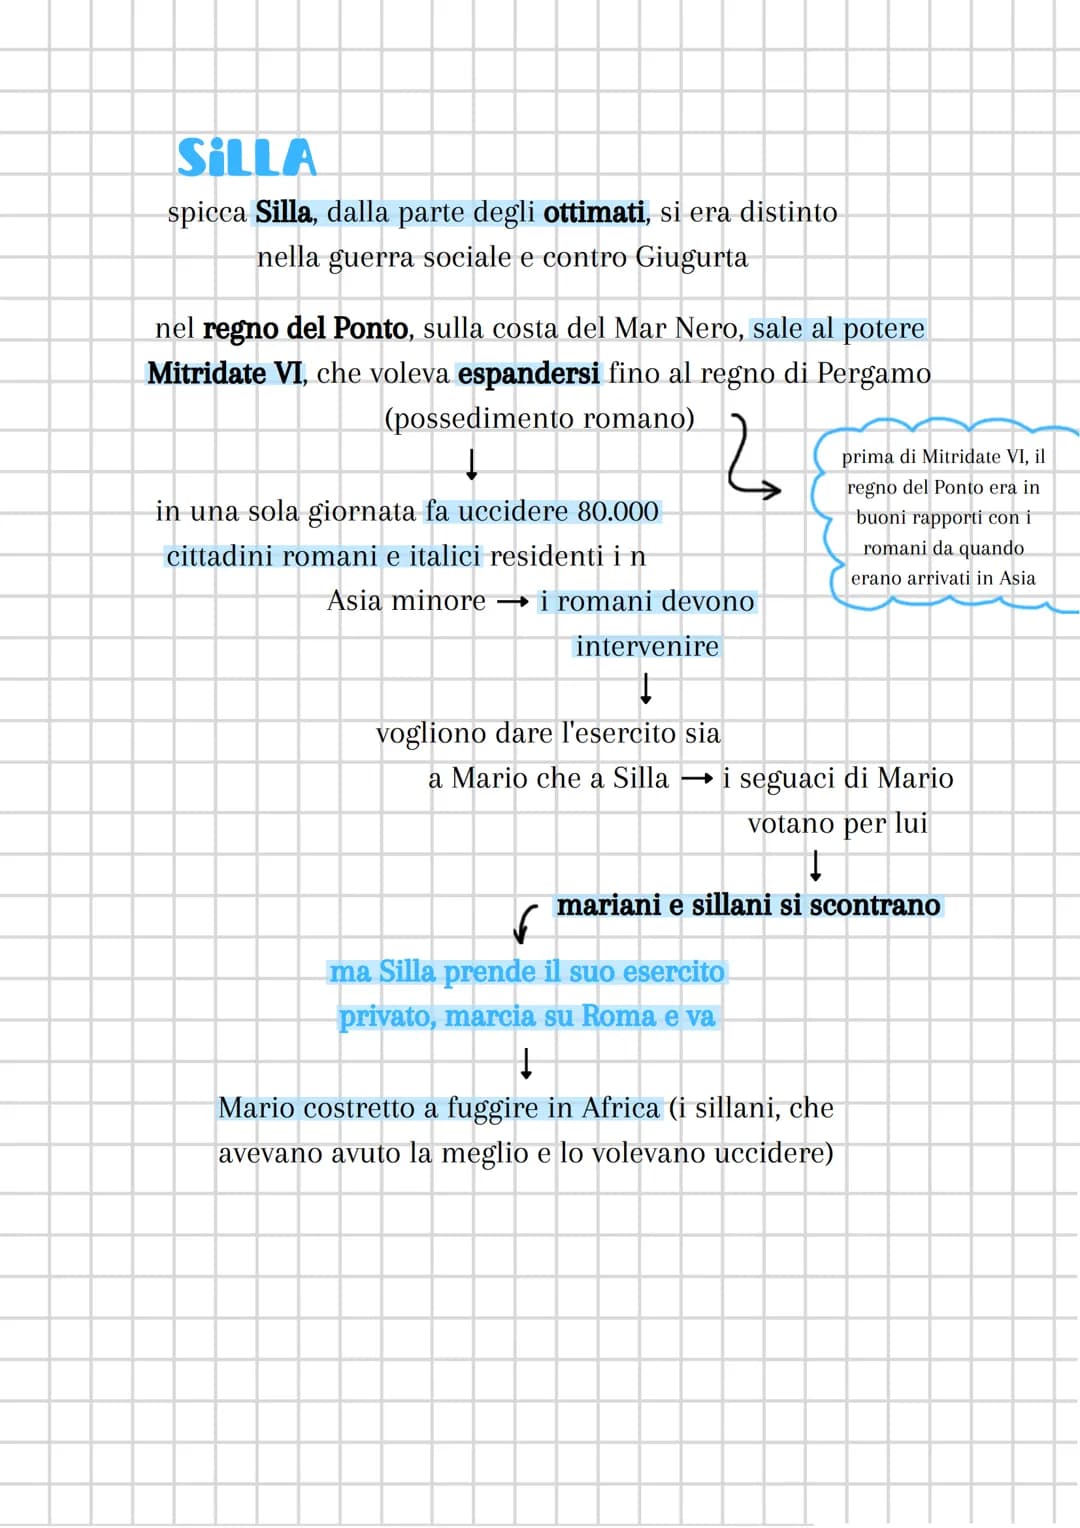 SiLLA
spicca Silla, dalla parte degli ottimati, si era distinto
nella guerra sociale e contro Giugurta
nel regno del Ponto, sulla costa del Mar Nero, sale al potere
Mitridate VI, che voleva espandersi fino al regno di Pergamo
(possedimento romano)
prima di Mitridate VI, il
regno del Ponto era in
buoni rapporti con i
romani da quando
erano arrivati in Asia
in una sola giornata fa uccidere 80.000
cittadini romani e italici residenti i n
Asia minore → i romani devono
intervenire
vogliono dare l'esercito sia
a Mario che a Silla → i seguaci di Mario
votano per lui
mariani e sillani si scontrano
ma Silla prende il suo esercito
privato, marcia su Roma e va
Mario costretto a fuggire in Africa (i sillani, che
avevano avuto la meglio e lo volevano uccidere)